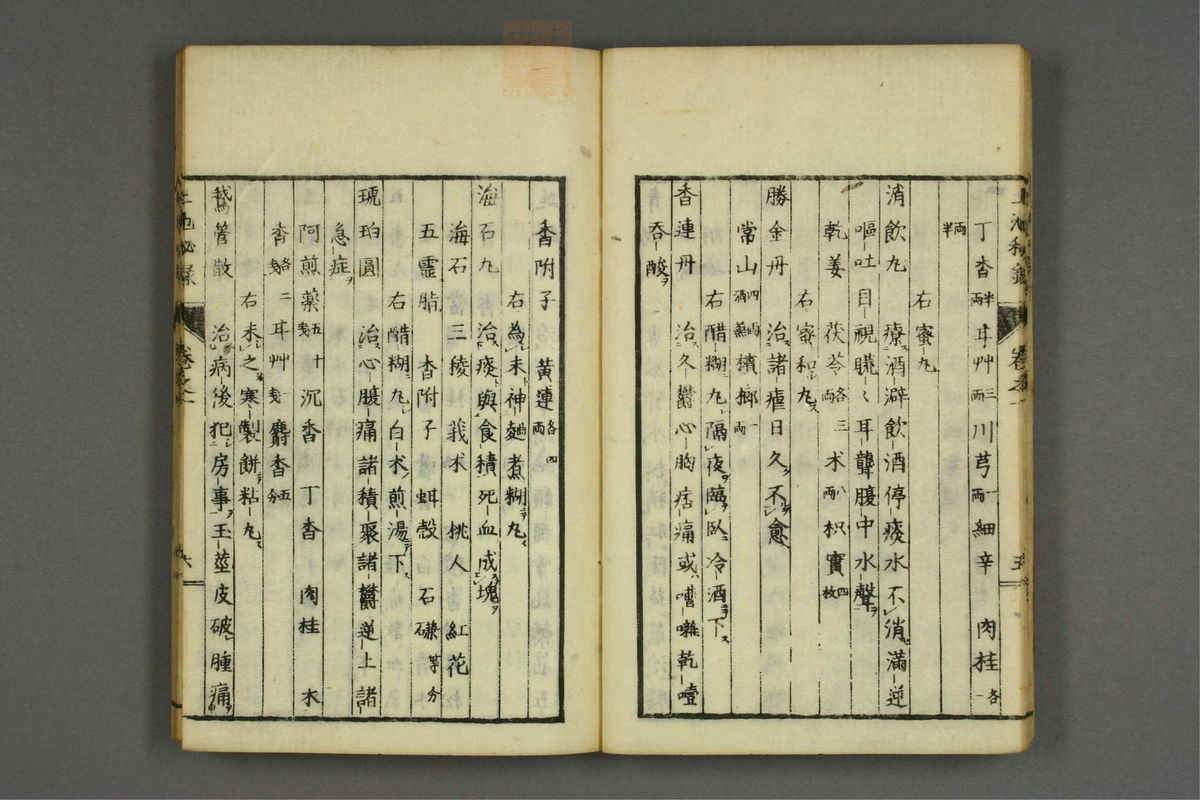 丁香半兩 耳艸三兩 川芎一兩 細辛 肉桂各一
兩半
右蜜丸
消飲丸 療ス酒澼飲酒停痰水不消滿逆
嘔吐目視䀮々耳聾腹中水聲ヲ
乾姜 茯苓各三兩 朮八兩 枳實四枚
右蜜和丸ス
勝金丹 治ス諸瘧日久不愈
常山四兩酒蒸 檳榔一兩
右醋糊丸隔夜臨臥冷酒下ス
香連丹 治ス久欝心胸痞痛或嘈囃乾噎
吞酸ヲ
香附子 黃連各四兩
右為末神麯煮糊丸ス
海石丸 治ス痰與食積死血成塊ヲ
海石 三稜 莪朮 桃人 紅花
五靈脂 香附子 蚶殼 石礆等分
右醋糊丸白朮煎湯下ス
琥珀圓 治ス心腹痛諸積聚諸欝逆上諸
急症ヲ
阿煎藥五十戔 沉香 丁香 肉桂 木
香各二戔 耳艸戔 麝香五分
右末之寒製餅粘丸ス
鵞管散 治病後犯房事玉莖皮破腫痛ヲ